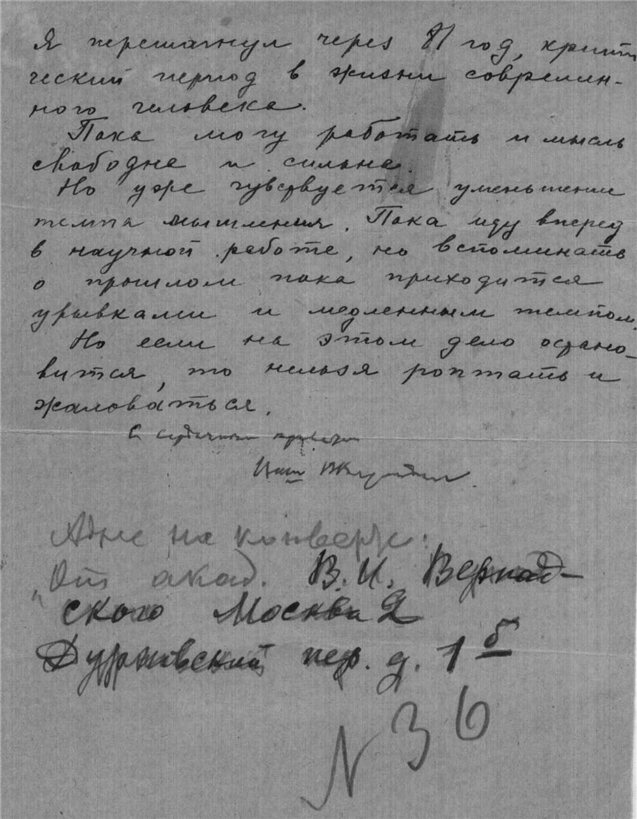 Я перешагнул через 81 год, крити
ческий период в жизни современ-
ного человека.
Пока могу работать и мысль
свободна и сильна.
Но уже чувствуется уменьшение
темпа мышления. Пока иду вперед
в научной работе, но вспоминать
о прошлом пока приходится
урывками и медленным темпом.
Но если на этом дело остано-
вится, то нельзя роптать и
жаловаться.
С сердечным приветом
Ваш
Адрес на конверте:
"От акад. В. И. Вернад-
ского Москва 2
Дурновский пер. д. 1 б
N 36